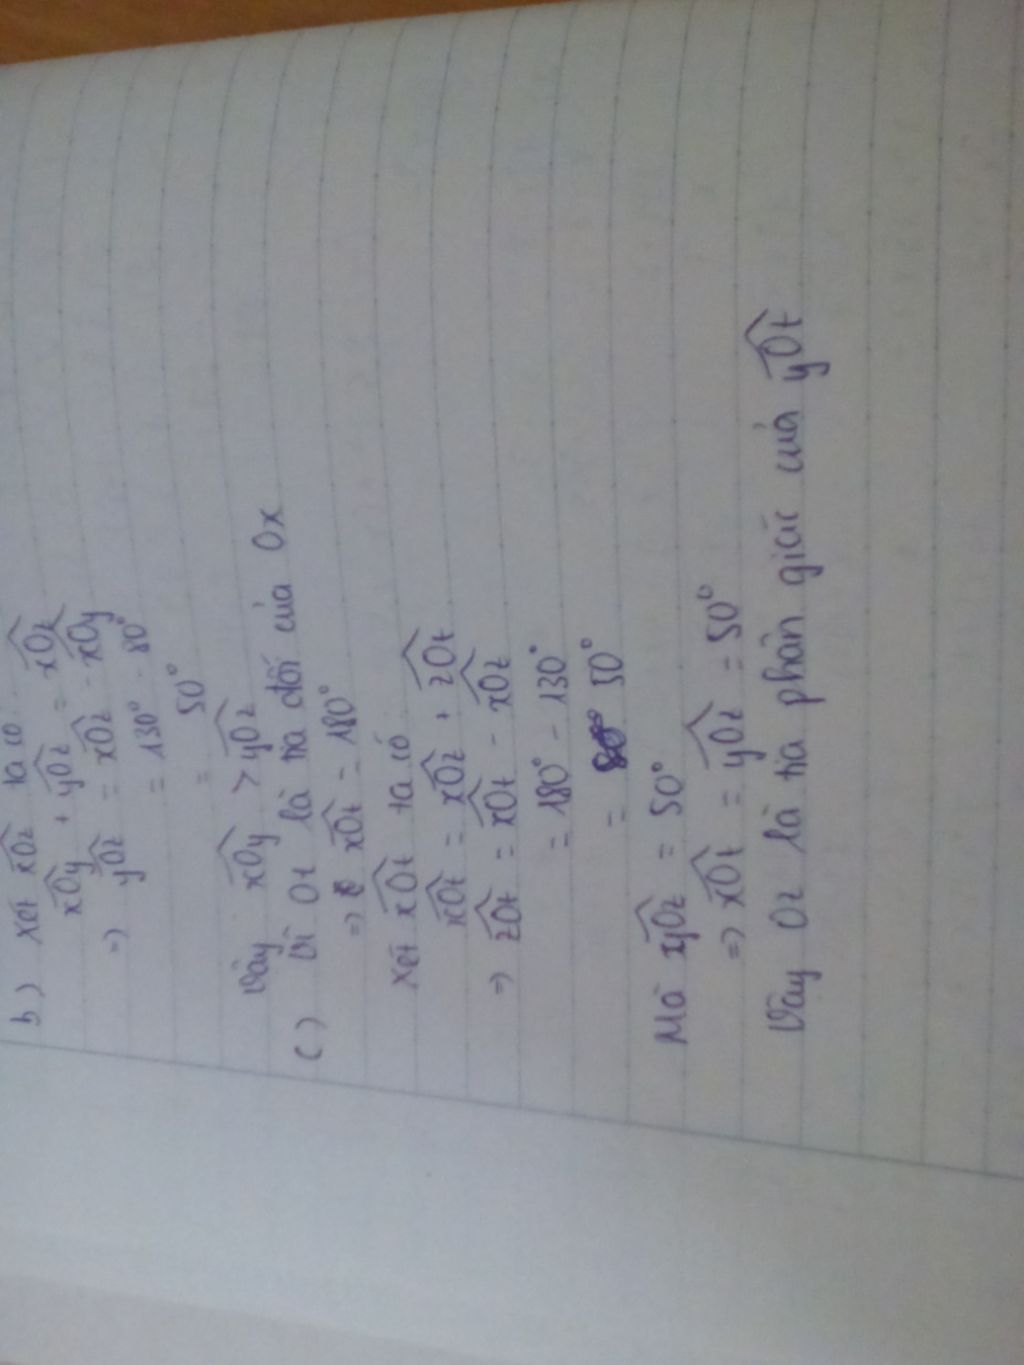 b) Xét x̂Oz ta có
x̂Oy + ŷOz = x̂Oz
=> ŷOz = x̂Oz - x̂Oy
= 130° - 80°
= 50°
Vậy x̂Oy > ŷOz
c) Vì Ot là tia đối của Ox
=> x̂Ot = 180°
Xét x̂Ot ta có
x̂Ot = x̂Oz + ẑOt
=> ẑOt = x̂Ot - x̂Oz
= 180° - 130°
= 50°
Mà ŷOz = 50°
=> x̂Ot = ŷOz = 50°
Vậy Oz là tia phân giác của ŷOt